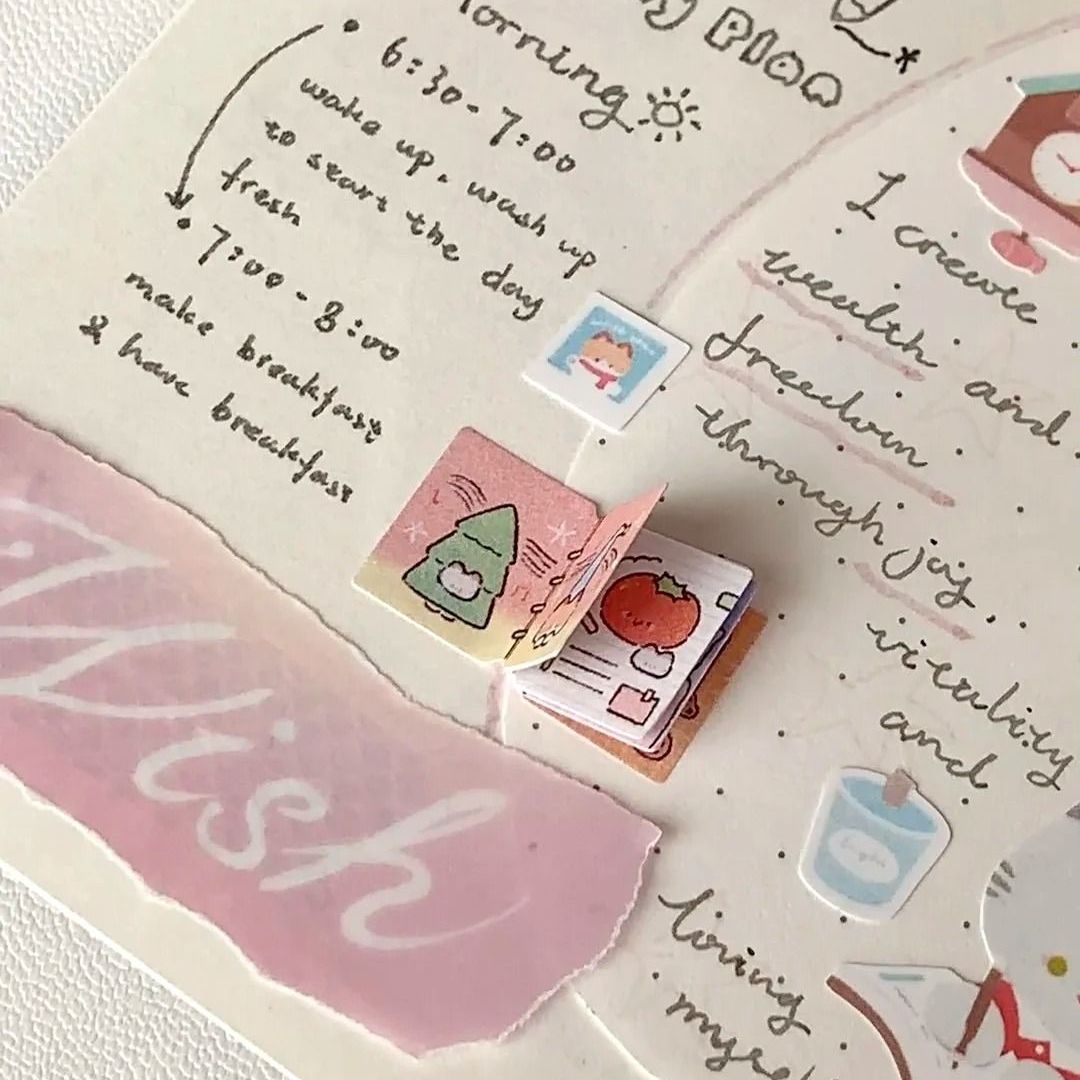 Plan
Morning
• 6:30 - 7:00
wake up, wash up
to start the day
fresh
• 7:00 - 8:00
make breakfast
& have breakfast
Wish
I create
wealth and
freedom
through joy,
vitality
and
loving